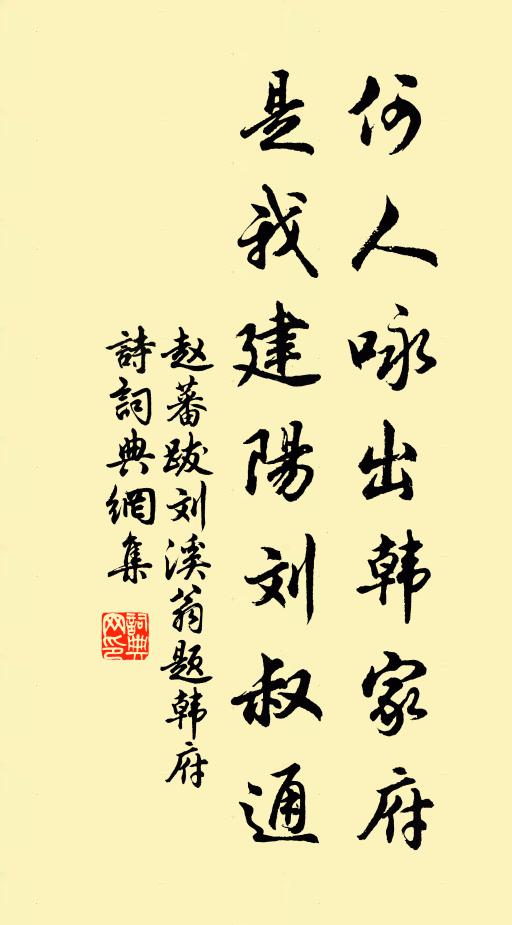 何人咏出韩家府
是我建陽刘叔通
赵蕃跋刘溪翁题韩府
詩詞典網集
詞典网印